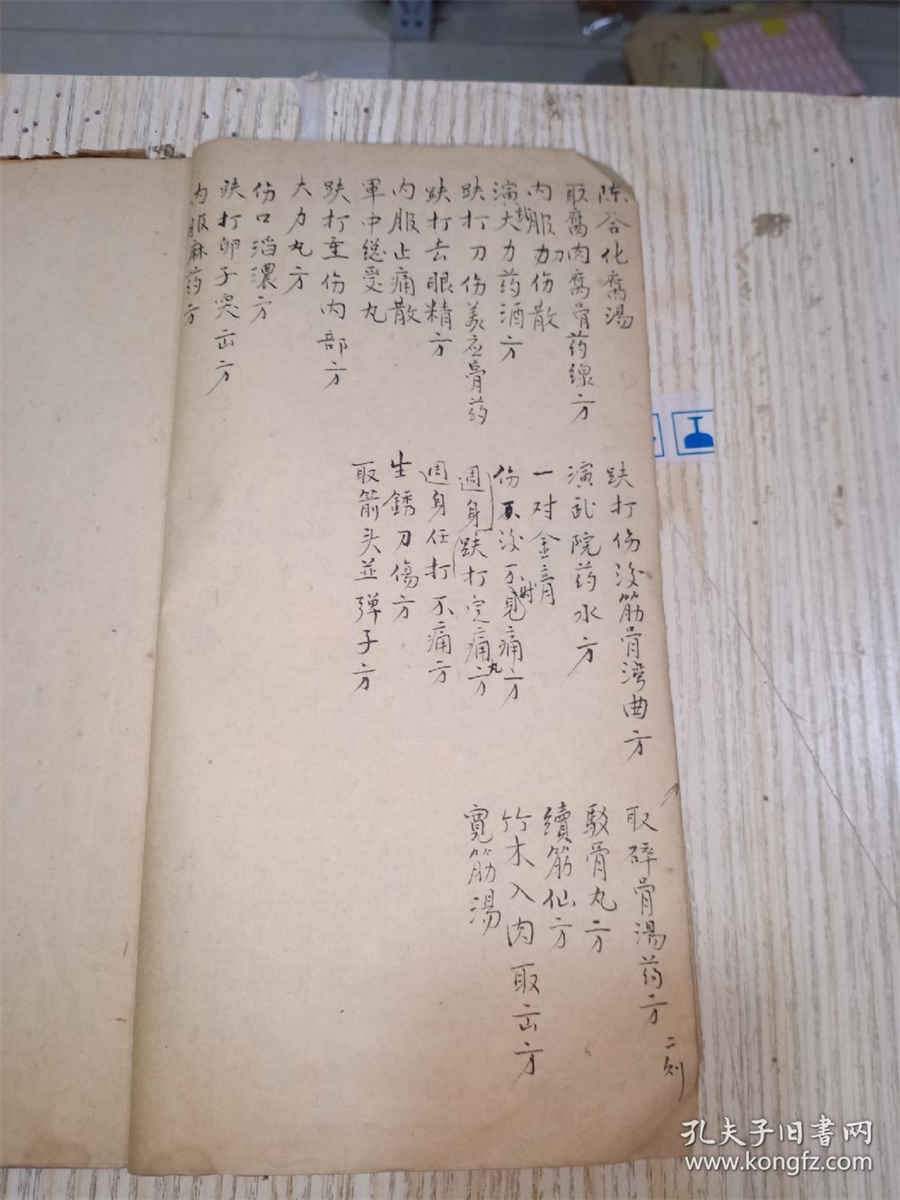 陈谷化腐湯
取腐肉腐骨药線方
内服刀伤散
演大力药酒方
跌打刀伤美应骨药
跌打去眼精方
内服止痛散
軍中総受丸
跌打重伤内部方
大力丸方
伤口滔濃方
跌打卵子哭出方
内服麻药方
跌打伤後筋骨湾曲方
演武院药水方
一对金膏
伤不後不見痛方
週身跌打定痛方
丸
週身任打不痛方
生銹刀傷方
取箭头並弹子方
取碎骨湯药方
二剂
駁骨丸方
續筋仙方
竹木入肉取出方
寛筋湯
孔夫子旧書网
www.kongfz.com